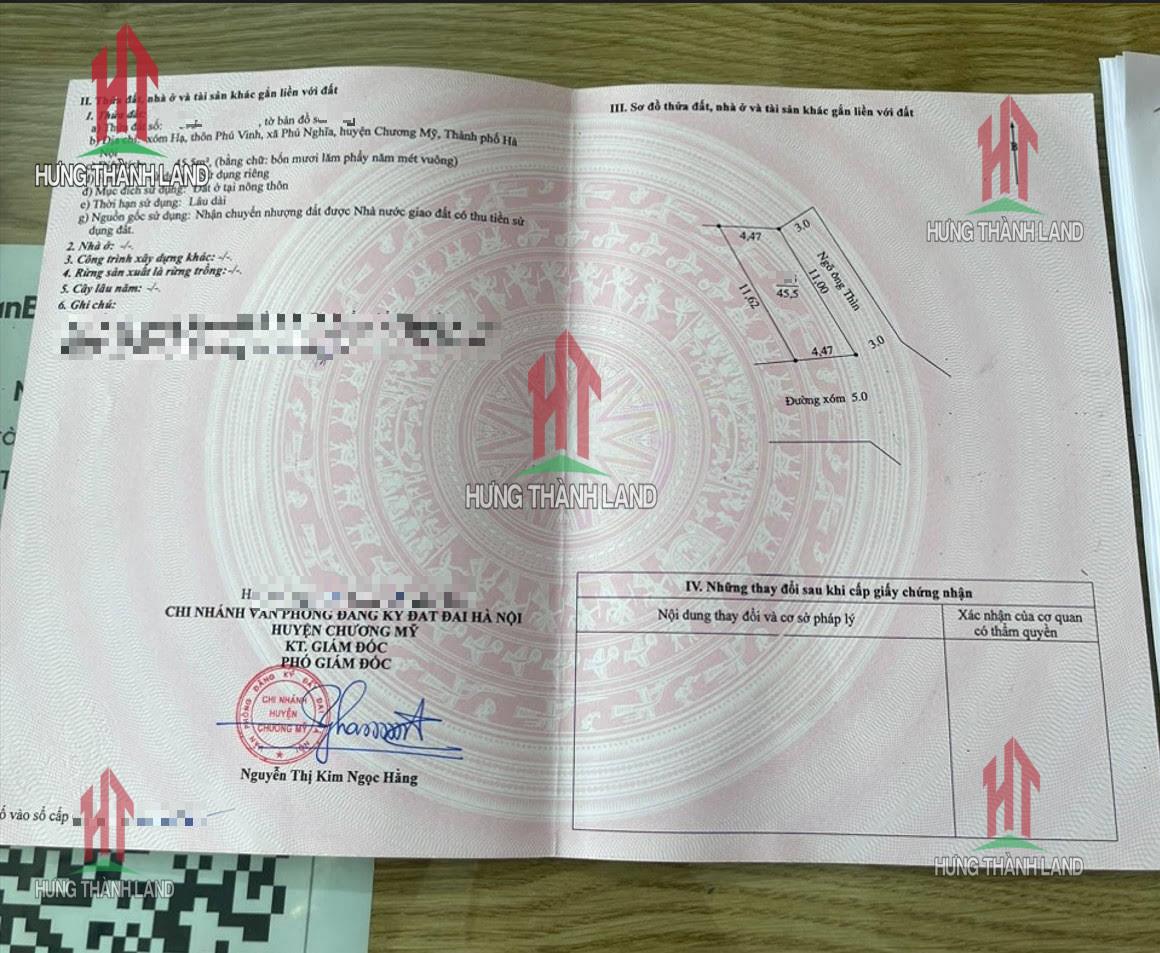 II. Thửa đất, nhà ở và tài sản khác gắn liền với đất
1. Thửa đất:
a) Thửa đất số: , tờ bản đồ
b) Địa chỉ: xóm Hạ, thôn Phú Vinh, xã Phú Nghĩa, huyện Chương Mỹ, Thành phố Hà
Nội
5m², (bằng chữ: bốn mươi lăm phẩy năm mét vuông)
sử dụng riêng
d) Mục đích sử dụng: Đất ở tại nông thôn
e) Thời hạn sử dụng: Lâu dài
g) Nguồn gốc sử dụng: Nhận chuyển nhượng đất được Nhà nước giao đất có thu tiền sử
dụng đất.
2. Nhà ở: -/-.
3. Công trình xây dựng khác: -/-.
4. Rừng sản xuất là rừng trồng: -/-.
5. Cây lâu năm: -/-.
6. Ghi chú:
CHI NHÁNH VĂN PHÒNG ĐĂNG KÝ ĐẤT ĐAI HÀ NỘI
HUYỆN CHƯƠNG MỸ
KT. GIÁM ĐỐC
PHÓ GIÁM ĐỐC
VĂN PHÒNG ĐĂNG KÝ ĐẤT ĐAI HÀ NỘI
CHI NHÁNH
HUYỆN
CHƯƠNG MỸ
Nguyễn Thị Kim Ngọc Hằng
ố vào sổ cấp
III. Sơ đồ thửa đất, nhà ở và tài sản khác gắn liền với đất
B
4,47
3.0
Ngõ ông Thìn
11,62
45,5
11,00
4,47
3.0
Đường xóm 5.0
IV. Những thay đổi sau khi cấp giấy chứng nhận
Nội dung thay đổi và cơ sở pháp lý
Xác nhận của cơ quan
có thẩm quyền
HƯNG THÀNH LAND
HƯNG THÀNH LAND
HƯNG THÀNH LAND
HƯNG THÀNH LAND
HƯNG THÀNH LAND